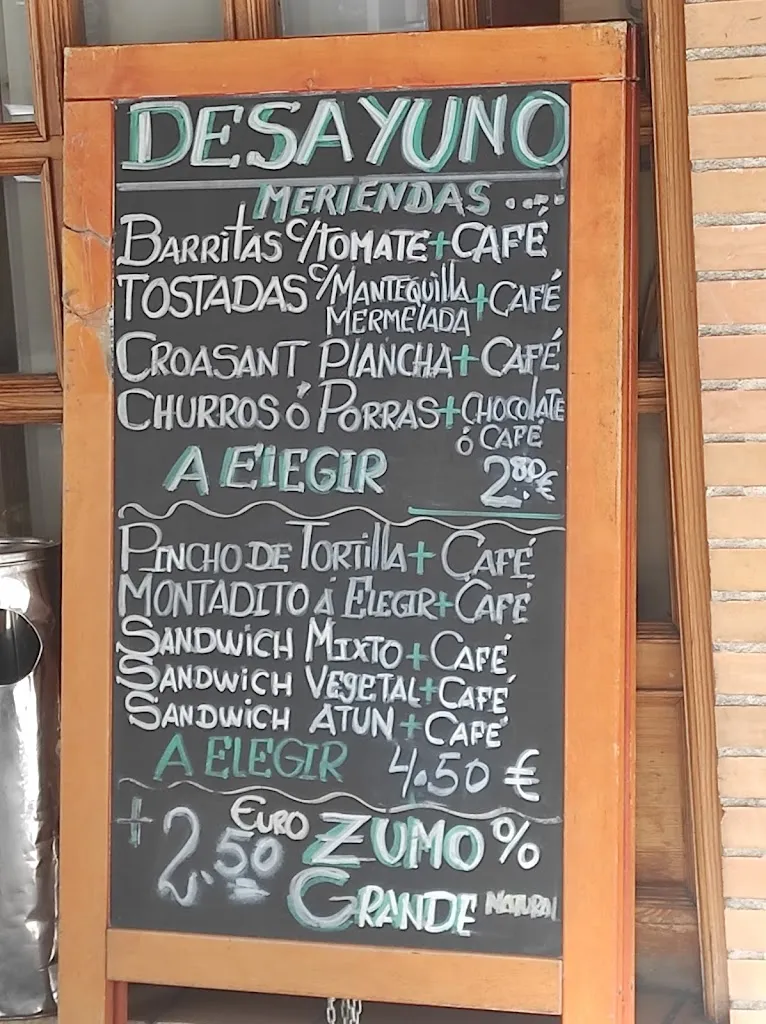 DESAYUNO
MERIENDAS ....
BARRITAS C/TOMATE + CAFÉ
TOSTADAS C/MANTEQUILLA + CAFÉ
MERMELADA
CROASANT PLANCHA + CAFÉ
CHURROS Ó PORRAS + CHOCOLATE
Ó CAFÉ
A ELEGIR 2.80 €
PINCHO DE TORTILLA + CAFÉ
MONTADITO Á ELEGIR + CAFÉ
SANDWICH MIXTO + CAFÉ
SANDWICH VEGETAL + CAFÉ
SANDWICH ATUN + CAFÉ
A ELEGIR 4.50 €
+ 2.50 EURO ZUMO %
GRANDE NATURAL